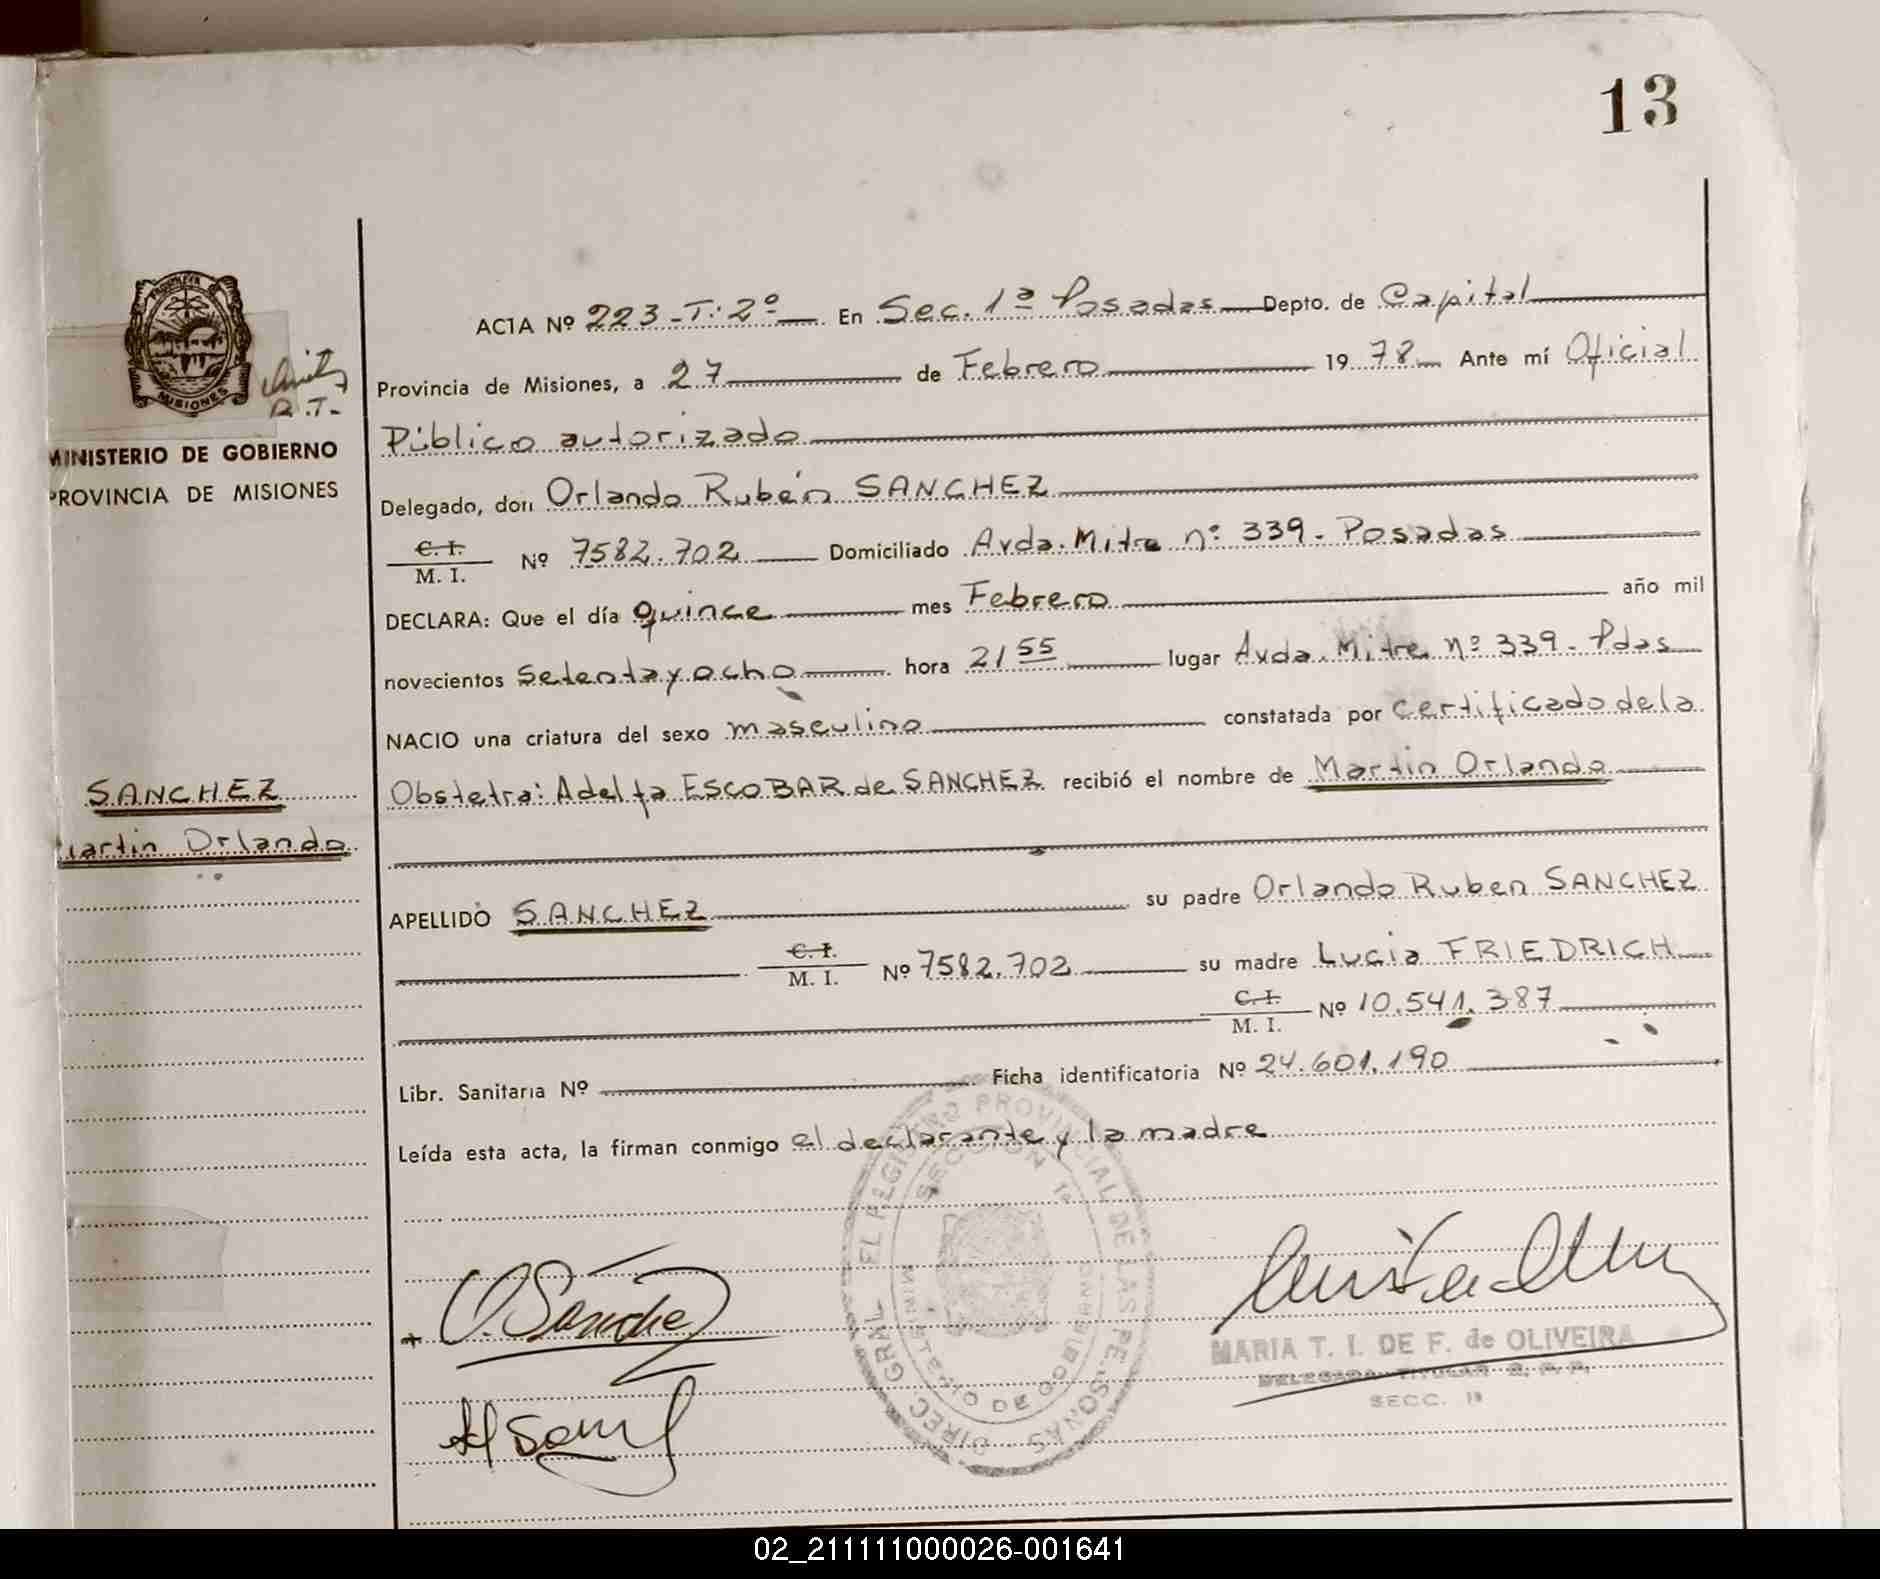 13
PROVINCIA
MISIONES
R.T.
MINISTERIO DE GOBIERNO
PROVINCIA DE MISIONES
ACTA Nº 223-T: 2º En Sec. 1ª Posadas Depto. de Capital
Provincia de Misiones, a 27 de Febrero 1978 Ante mí Oficial
Público autorizado
Delegado, don Orlando Rubén SANCHEZ
C. I.
M. I.
Nº 7582.702 Domiciliado Avda. Mitre nº 339 - Posadas
DECLARA: Que el día quince mes Febrero año mil
novecientos setenta y ocho hora 21 55 lugar Avda. Mitre nº 339 - Pdas
NACIO una criatura del sexo masculino constatada por certificado de la
Obstetra: Adelfa ESCOBAR de SANCHEZ recibió el nombre de Martin Orlando
SANCHEZ
Martin Orlando
APELLIDO SANCHEZ su padre Orlando Ruben SANCHEZ
C. I.
M. I.
Nº 7582.702 su madre Lucia FRIEDRICH
C. I.
M. I.
Nº 10.541.387
Libr. Sanitaria Nº Ficha identificatoria Nº 24.601.190
Leída esta acta, la firman conmigo el declarante y la madre
DIREC. GRAL. EL REGISTRO PROVINCIAL DE LAS PERSONAS
SECCION 1ª
MINISTERIO DE GOBIERNO
O. Sánchez
MARIA T. I. DE F. de OLIVEIRA
DELEGADA TITULAR R. P. P.
SECC. 1ª
02_211111000026-001641